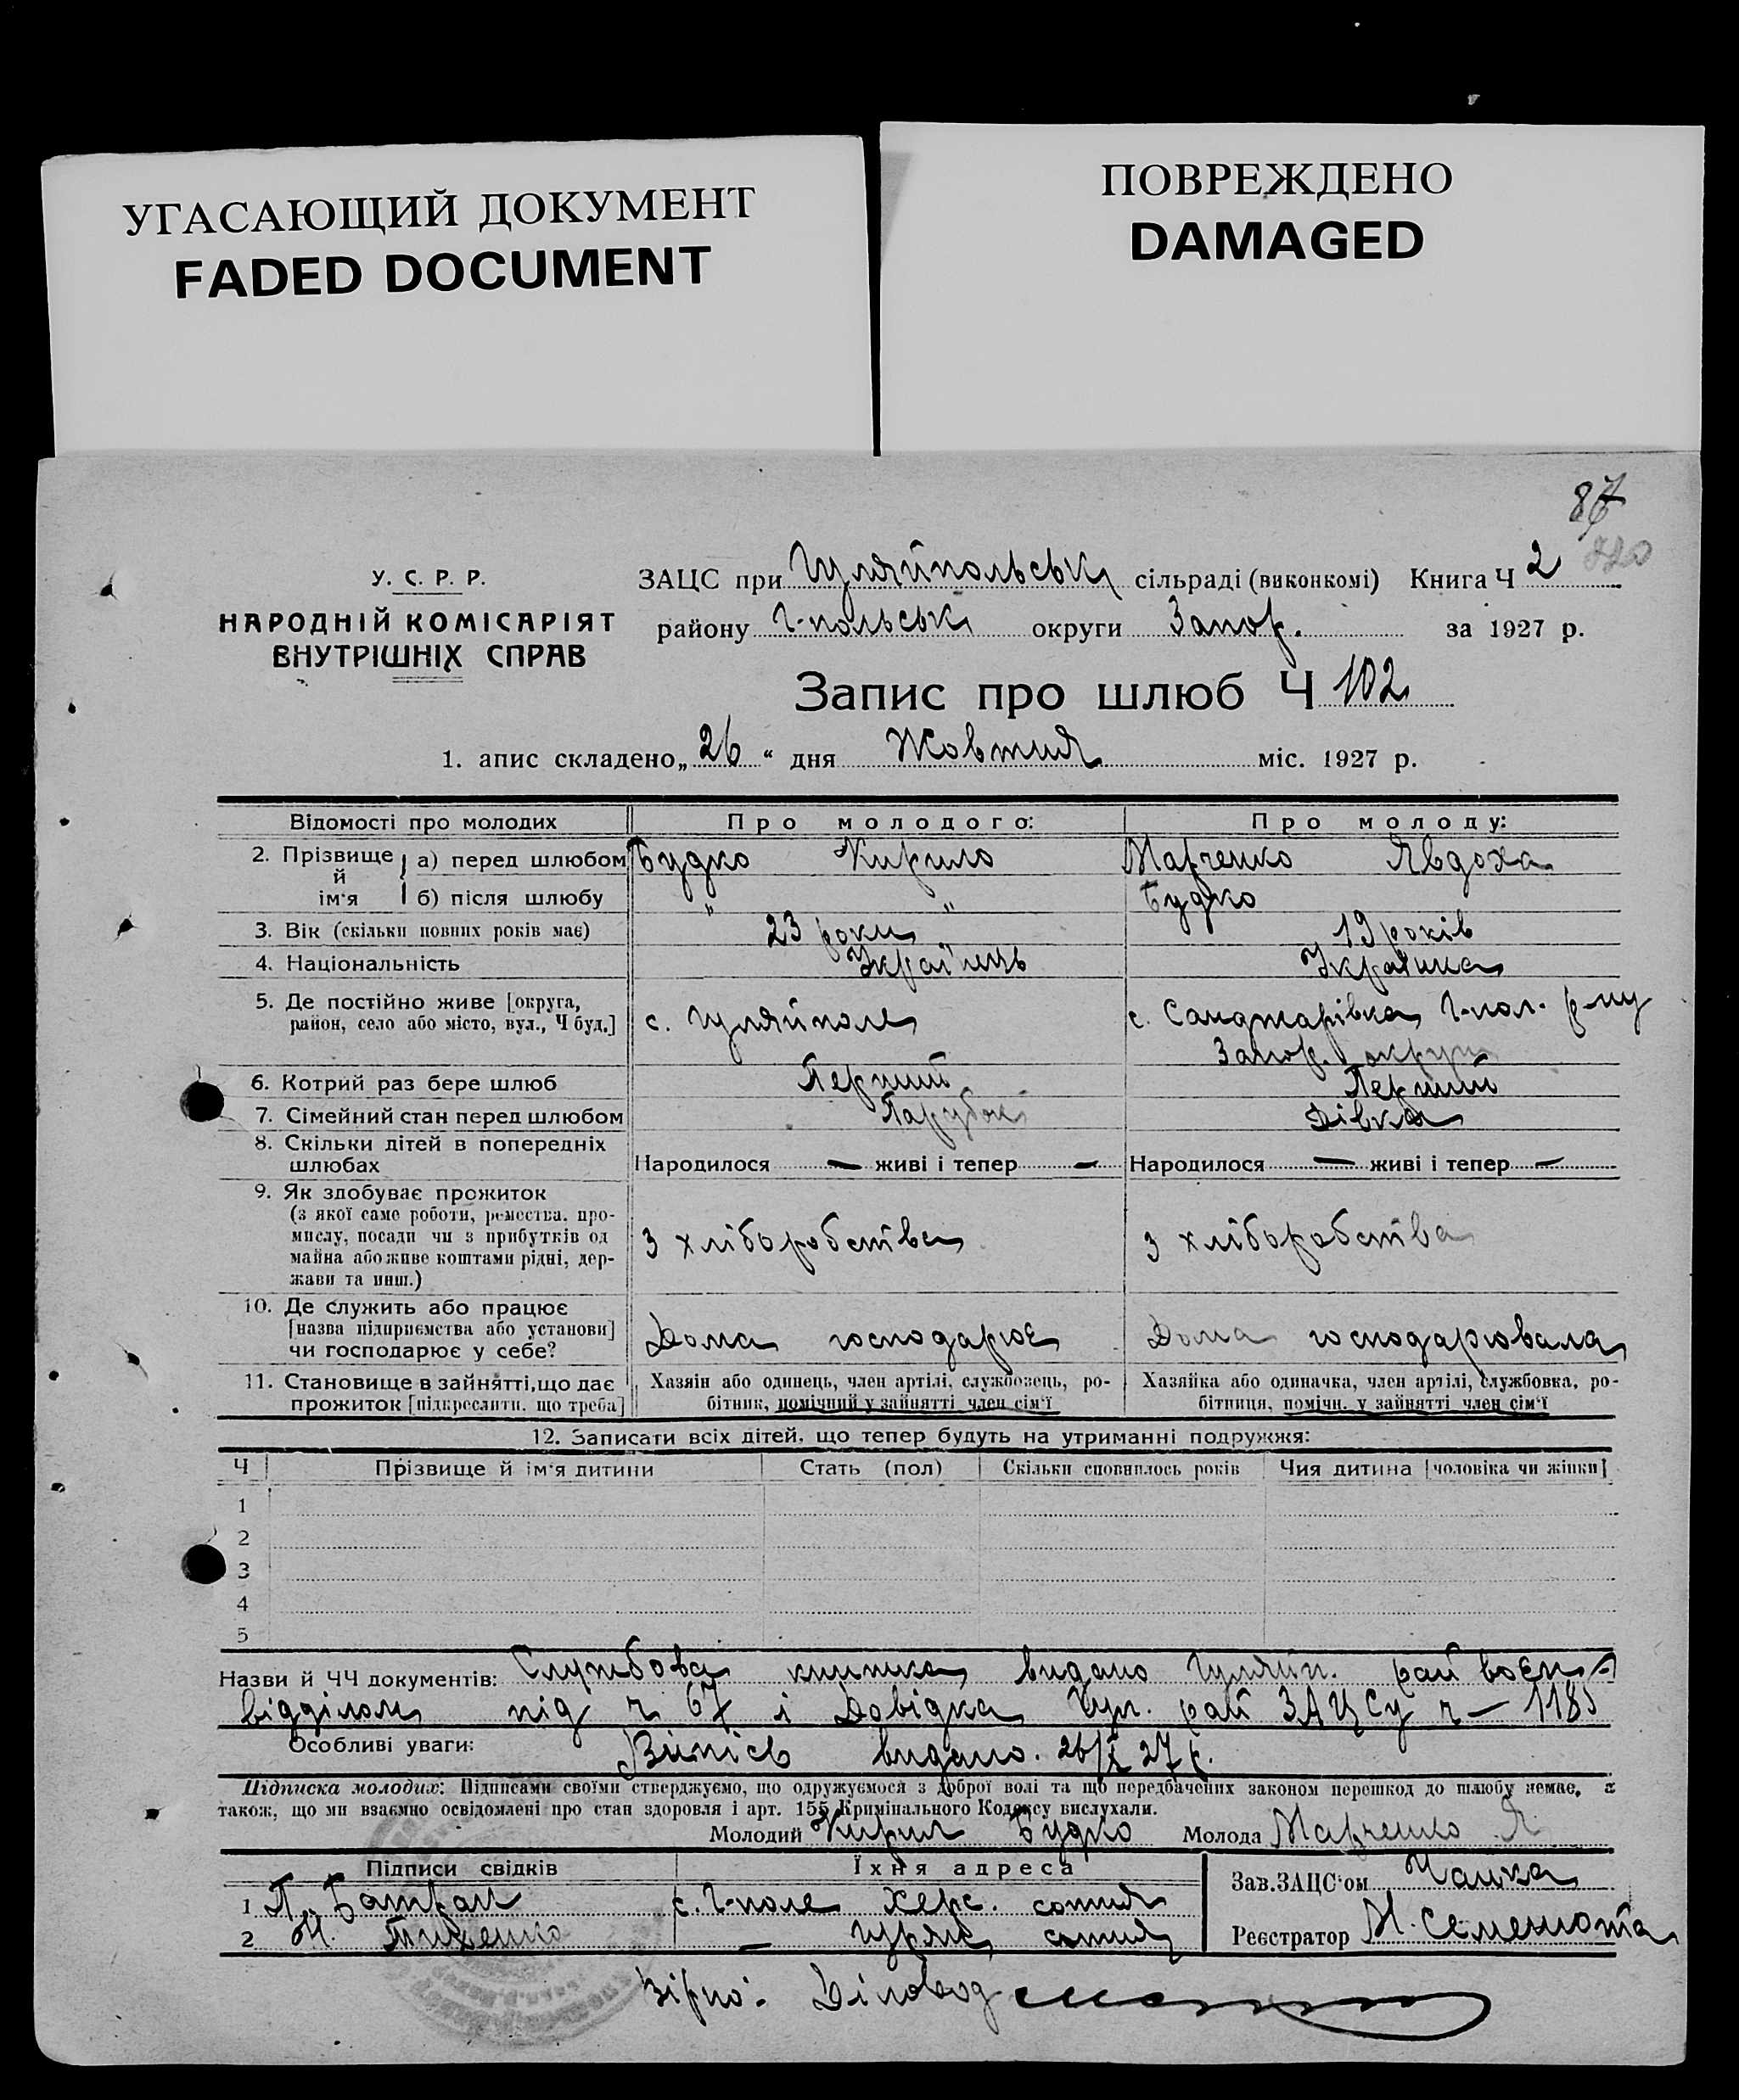 УГАСАЮЩИЙ ДОКУМЕНТ
FADED DOCUMENT
ПОВРЕЖДЕНО
DAMAGED
87
У. С. Р. Р.
НАРОДНІЙ КОМІСАРІЯТ
ВНУТРІШНІХ СПРАВ
ЗАЦС при Гуляйпольськ сільраді (виконкомі) Книга Ч 2
району Г-польськ округи Запор. за 1927 р.
Запис про шлюб Ч 102
1. апис складено „ 26 “ дня Жовтня міс. 1927 р.
Відомості про молодих Про молодого: Про молоду:
2. Прізвище й ім'я а) перед шлюбом Будко Кирило Марченко Явдоха
б) після шлюбу " " Будко
3. Вік (скільки повних років має) 23 роки 19 років
4. Національність Украї'нець Українка
5. Де постійно живе [округа,
район, село або місто, вул., Ч буд.] с. Гуляйполе с. Санжарівка Г-пол. р-ну
Запор. округи
6. Котрий раз бере шлюб Перший Перший
7. Сімейний стан перед шлюбом Парубок Дівка
8. Скільки дітей в попередніх
шлюбах Народилося — живі і тепер — Народилося — живі і тепер —
9. Як здобуває прожиток
(з якої саме роботи, ремества, про-
мислу, посади чи з прибутків од
майна або живе коштами рідні, дер-
жави та инш.) З хліборобства З хліборобства
10. Де служить або працює
[назва підприємства або установи]
чи господарює у себе? Дома господарює Дома господарювала
11. Становище в зайнятті, що дає
прожиток [підкреслити, що треба]
Хазяін або одинець, член артілі, службовець, ро-
бітник, помічний у зайнятті член сім'ї
Хазяйка або одиначка, член артілі, службовка, ро-
бітниця, помічн. у зайнятті член сім'ї
12. Записати всіх дітей, що тепер будуть на утриманні подружжя:
Ч Прізвище й ім'я дитини Стать (пол) Скільки сповнилось років Чия дитина [чоловіка чи жінки]
1
2
3
4
5
Назви й ЧЧ документів: Службова книжка видано Гуляйп. рай воєн-
відділом під ч 67 і Довідка Гул. рай ЗАЦСу ч — 1185
Особливі уваги: Випісь видано. 26/X 27 р.
Підписка молодих: Підписами своїми стверджуємо, що одружуємося з доброї волі та що передбачених законом перешкод до шлюбу немає, а
також, що ми взаємно освідомлені про стан здоровля і арт. 155 Кримінального Кодексу вислухали.
Молодий Кирил Будко Молода Марченко Я
Підписи свідків Їхня адреса Зав.ЗАЦС'ом Чашка
1 П. Батрак с. Г-поле Херс. сотня
2 М. Тищенко — Гуряк сотня Реєстратор М. Семенюта
Вірно: Діловод